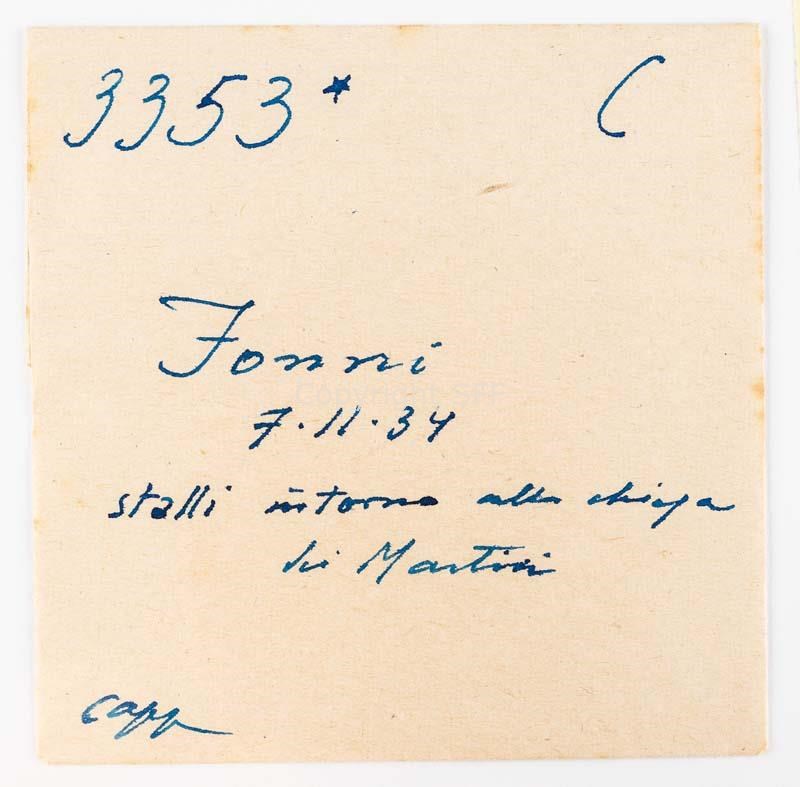 3353* C
Fonni
7.11.34
stalli intorno alla chiesa
dei Martiri
capp